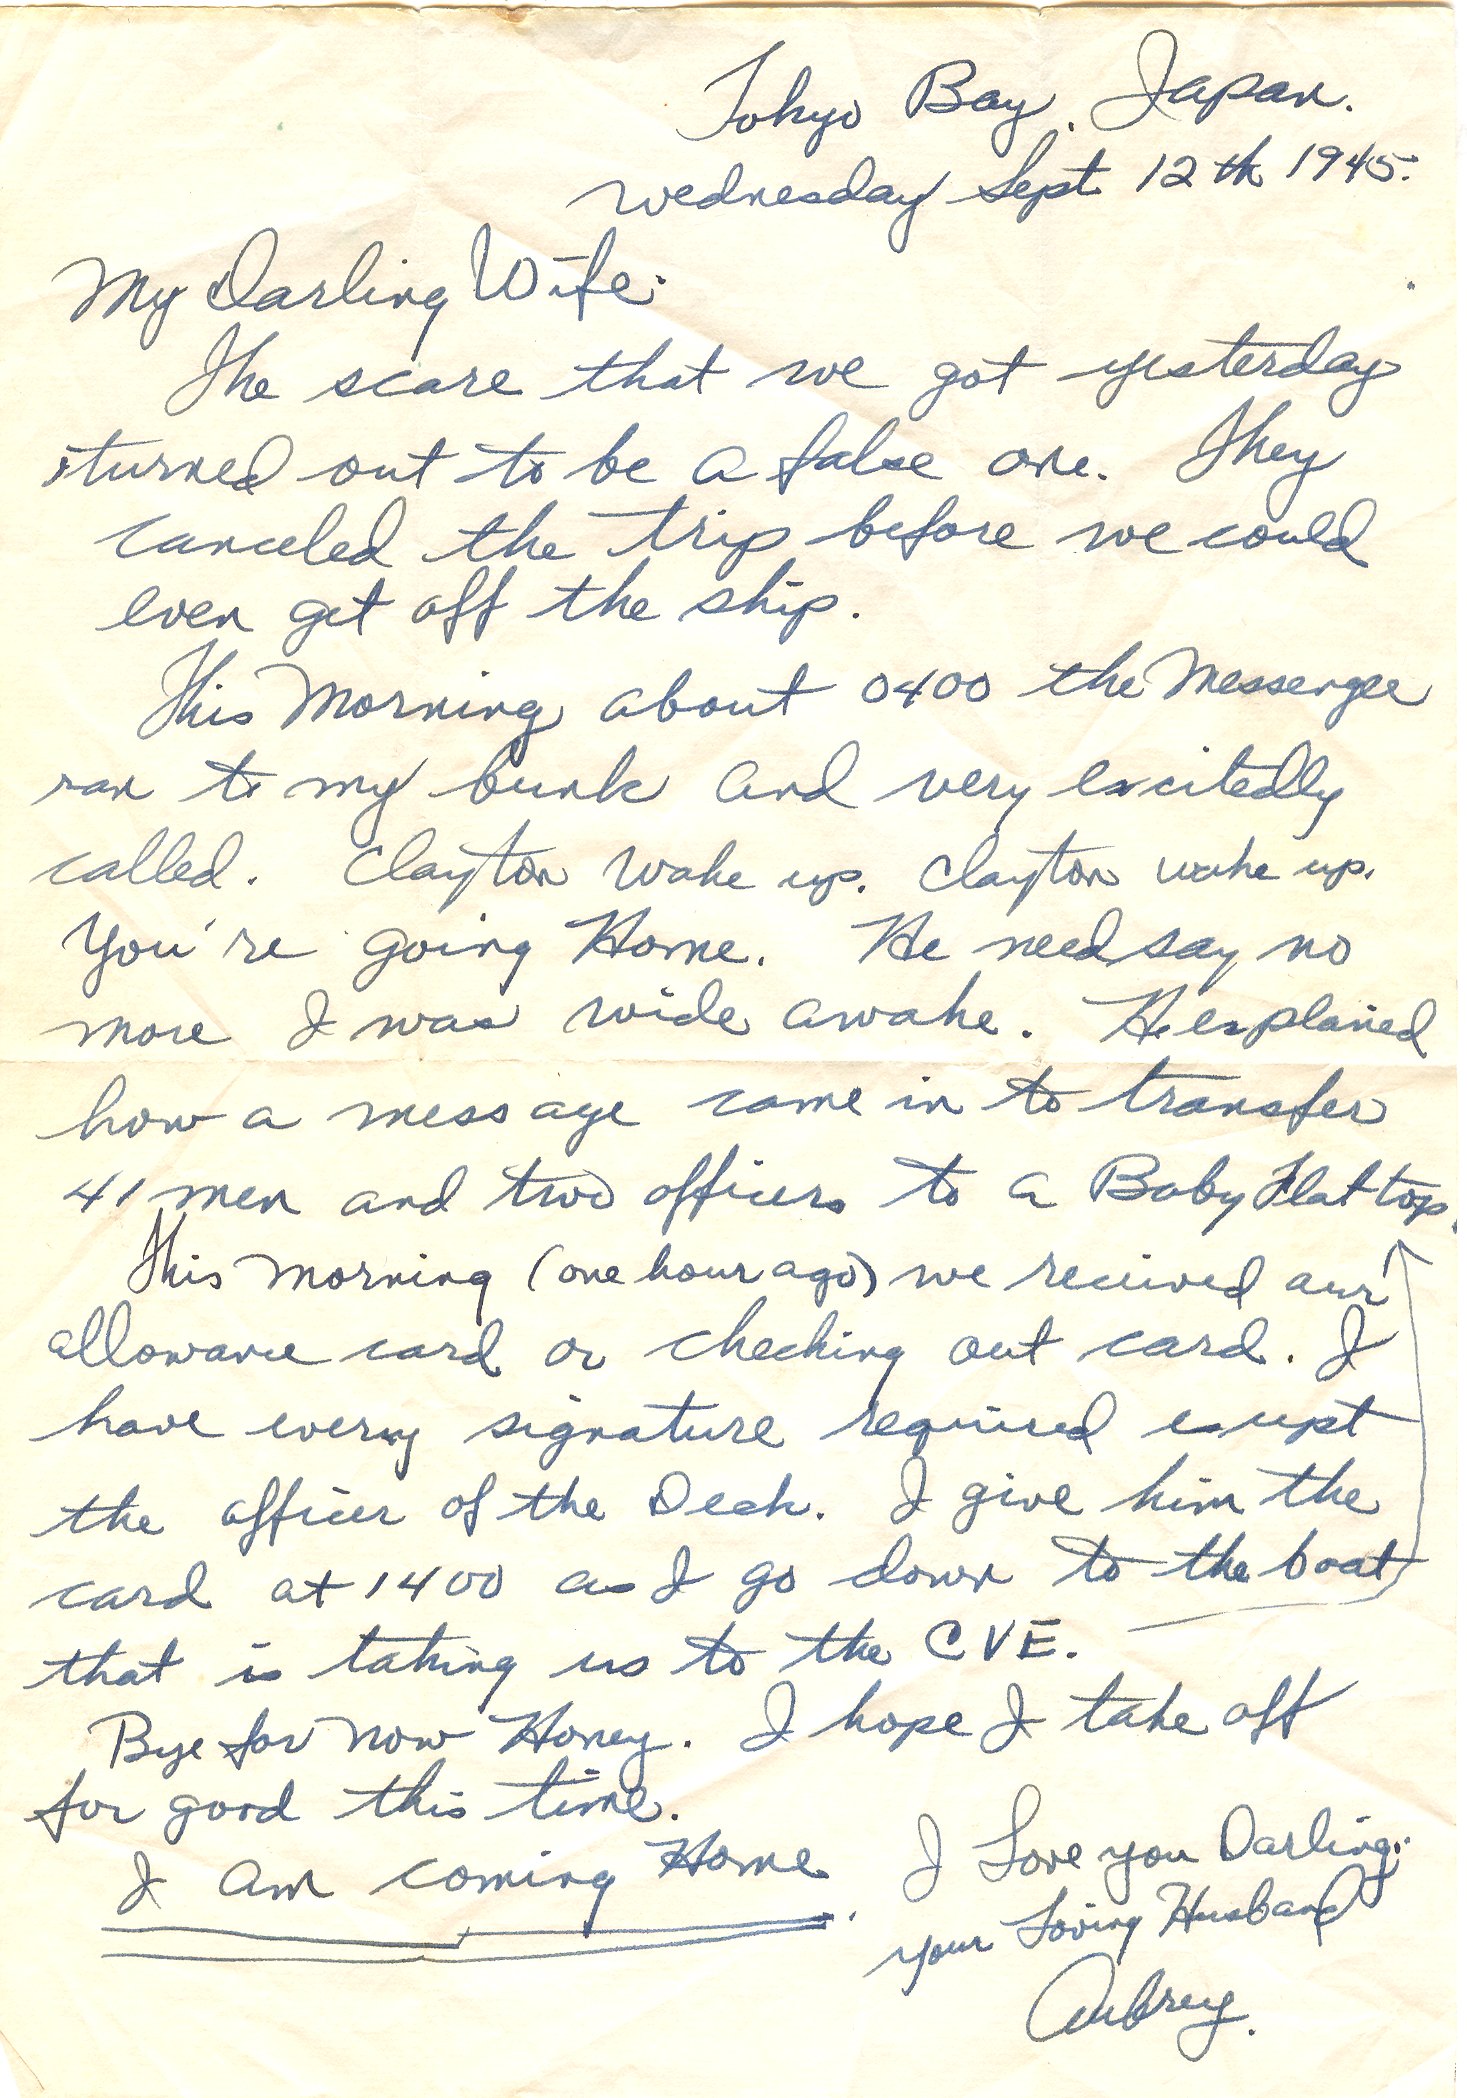 Tokyo Bay, Japan.
Wednesday Sept. 12th 1945.
My Darling Wife:
The scare that we got yesterday
turned out to be a false one. They
canceled the trip before we could
even get off the ship.
This Morning about 0400 the Messenger
ran to my bunk and very excitedly
called. Clayton wake up. Clayton wake up.
You're going Home. He need say no
more I was wide awake. He explained
how a message came in to transfer
41 men and two officers to a Baby Flat top.
This Morning (one hour ago) we received our
allowance card or checking out card. I
have every signature required except
the officer of the Deck. I give him the
card at 1400 as I go down to the boat
that is taking us to the CVE.
Bye for now Honey. I hope I take off
for good this time.
I am coming Home.
I Love you Darling.
your Loving Husband
Aubrey.